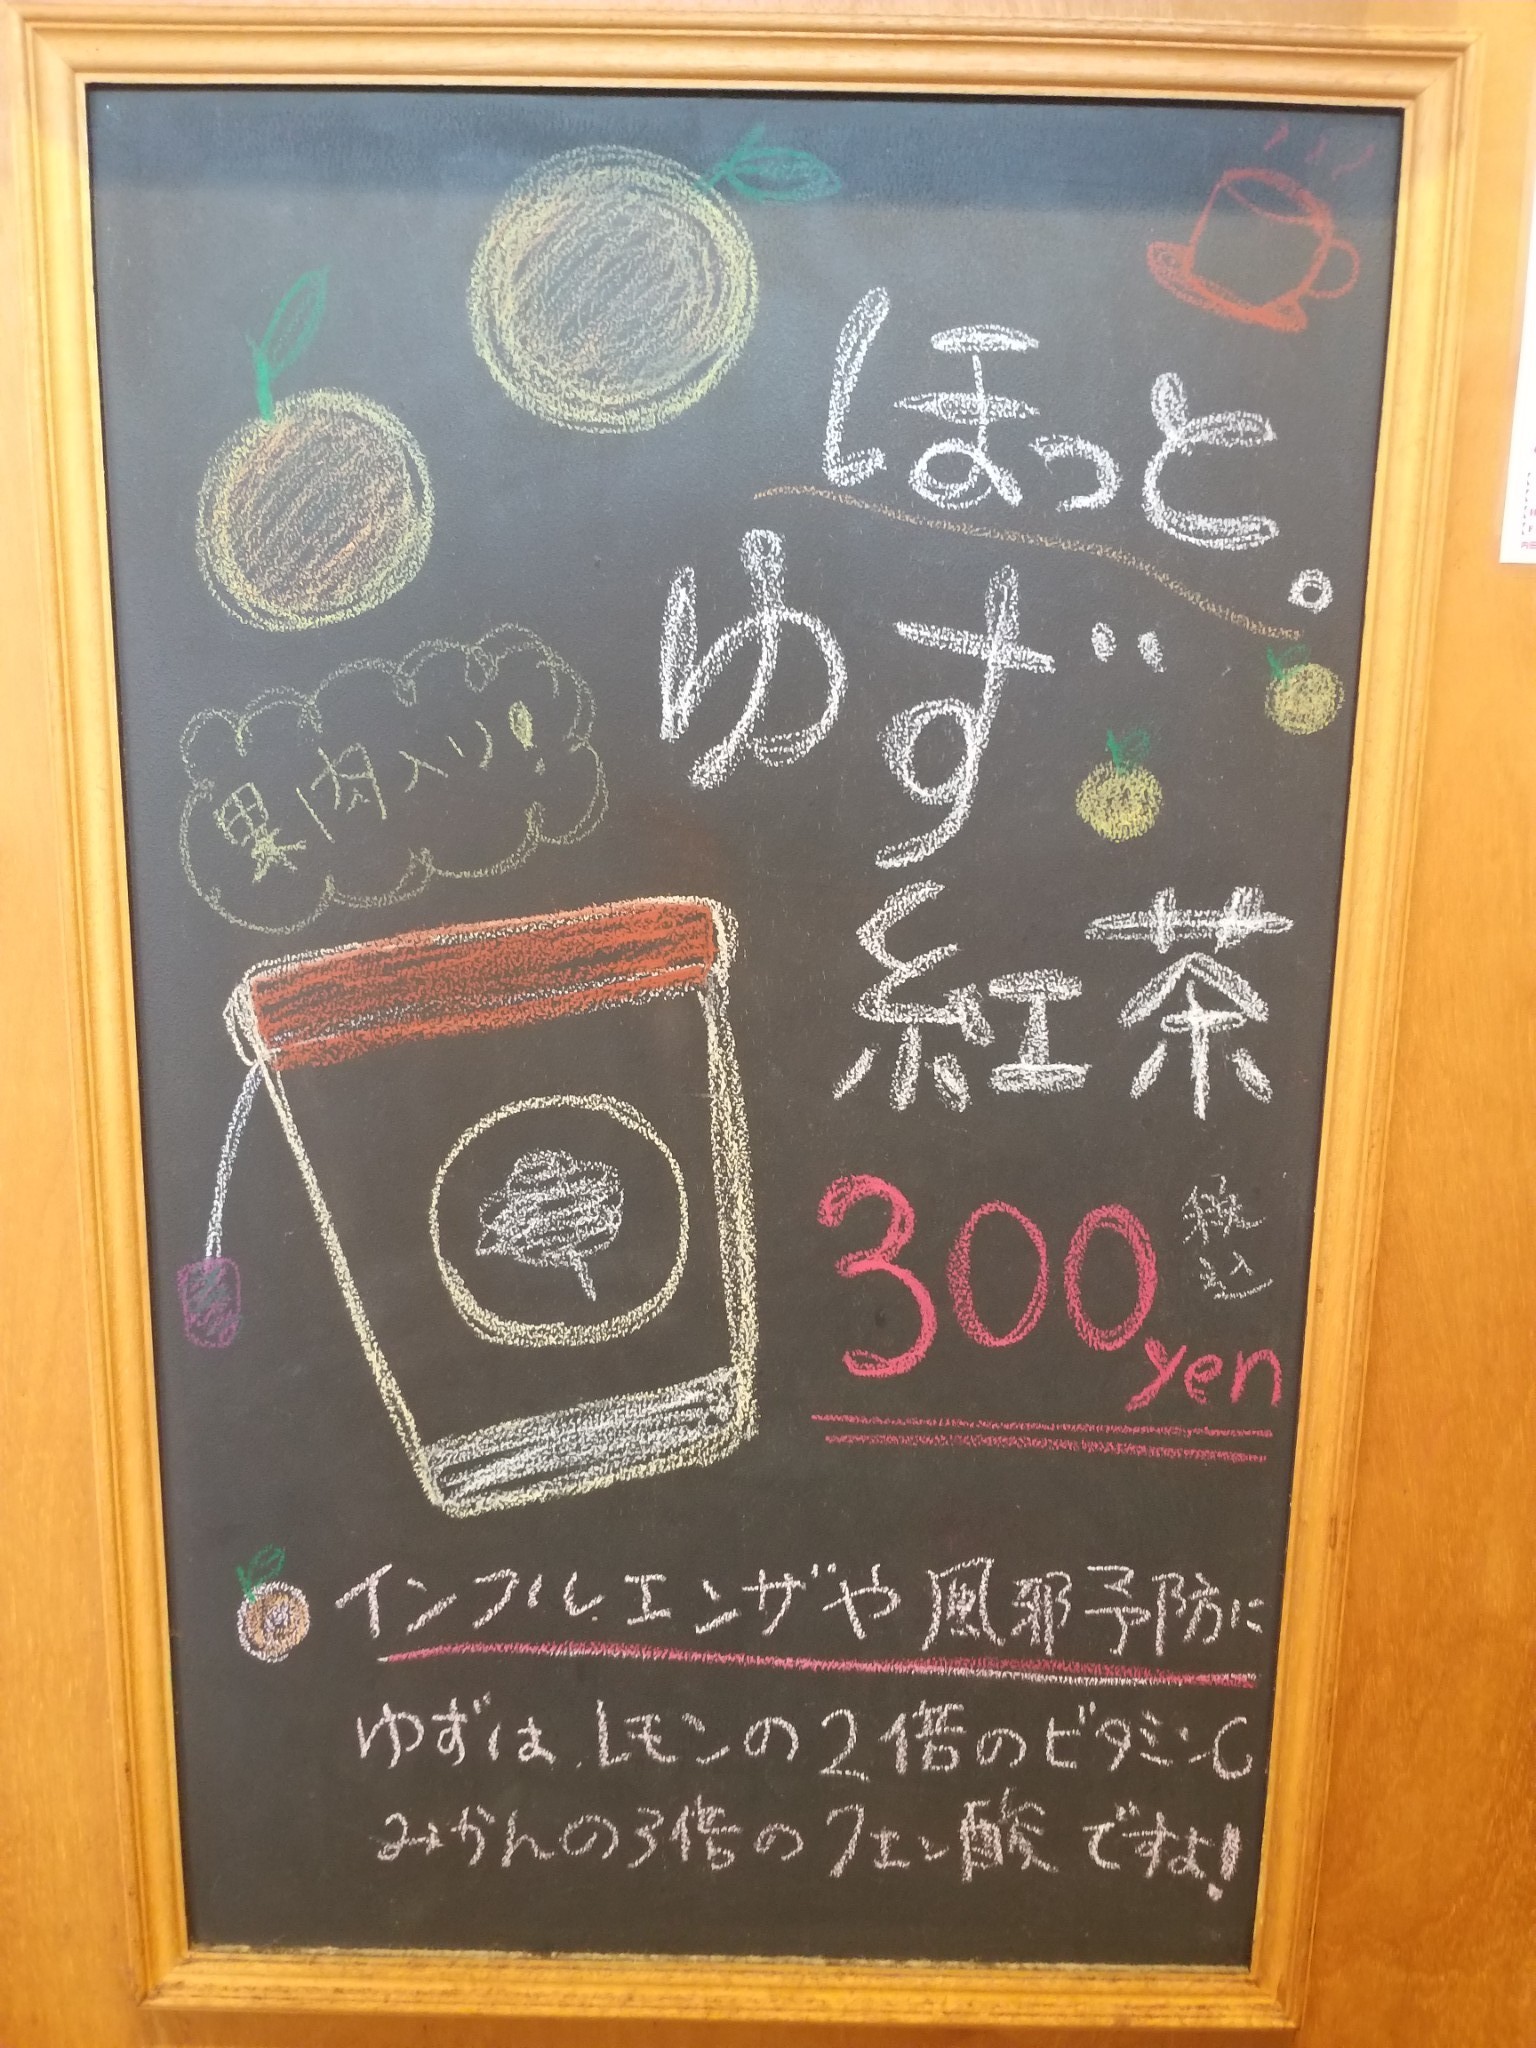 ほっと。
ゆず
紅茶
果肉入り!
300yen
税込
インフルエンザや風邪予防に
ゆずはレモンの2倍のビタミンC
みかんの3倍のクエン酸ですよ!